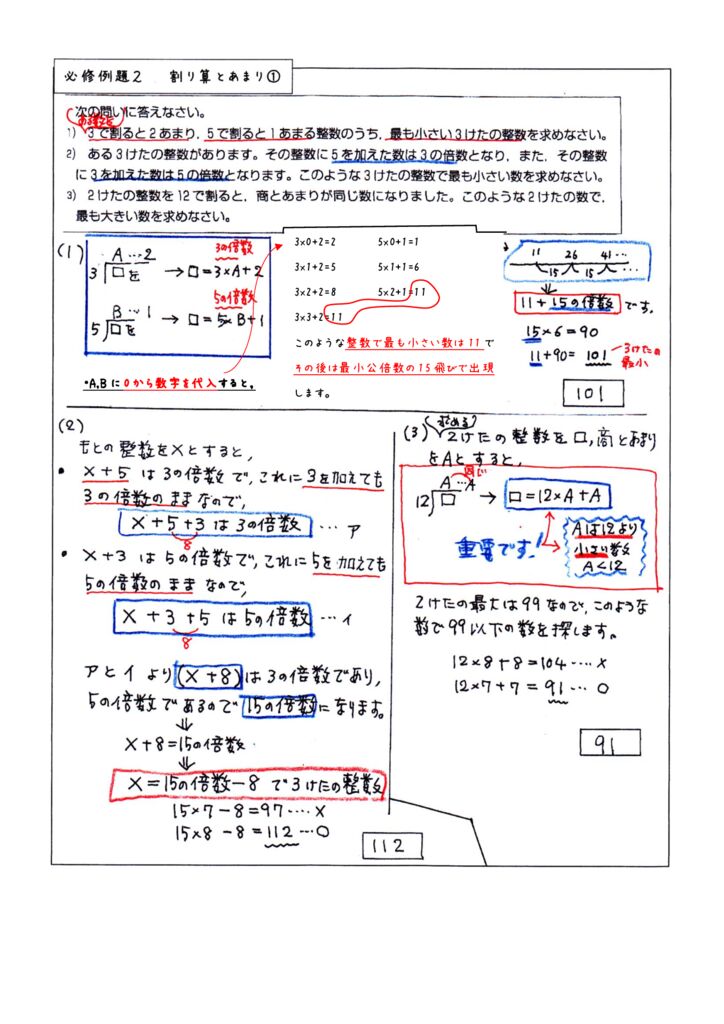 必修例題2 割り算とあまり①
次の問いに答えなさい。
ある整数を
1) 3で割ると2あまり,5で割ると1あまる整数のうち,最も小さい3けたの整数を求めなさい。
2) ある3けたの整数があります。その整数に5を加えた数は3の倍数となり,また,その整数
に3を加えた数は5の倍数となります。このような3けたの整数で最も小さい数を求めなさい。
3) 2けたの整数を12で割ると,商とあまりが同じ数になりました。このような2けたの数で,
最も大きい数を求めなさい。
(1)
A…2
3の倍数
3)□を → □=3×A+2
5の倍数
B…1
5)□を → □=5×B+1
・A,Bに0から数字を代入すると,
3×0+2=2 5×0+1=1
3×1+2=5 5×1+1=6
3×2+2=8 5×2+1=11
3×3+2=11
このような整数で最も小さい数は11で
その後は最小公倍数の15飛びで出現
します。
11 26 41…
15 15 …
11+15の倍数です。
15×6=90
11+90=101
3けたの最小
101
(2)
もとの整数をxとすると,
・x+5は3の倍数で,これに3を加えても
3の倍数のままなので,
x+5+3は3の倍数 …ア
8
・x+3は5の倍数で,これに5を加えても
5の倍数のままなので,
x+3+5は5の倍数 …イ
8
アとイより(x+8)は3の倍数であり,
5の倍数であるので15の倍数になります。
⇓
x+8=15の倍数
⇓
x=15の倍数-8で3けたの整数
15×7-8=97…×
15×8-8=112…○
112
(3)
求める
2けたの整数を□,商とあまり
をAとすると,
同じ
A…A
12)□ → □=12×A+A
重要です!
Aは12より
小さい整数
A<12
2けたの最大は99なので,このような
数で99以下の数を探します。
12×8+8=104…×
12×7+7=91…○
91